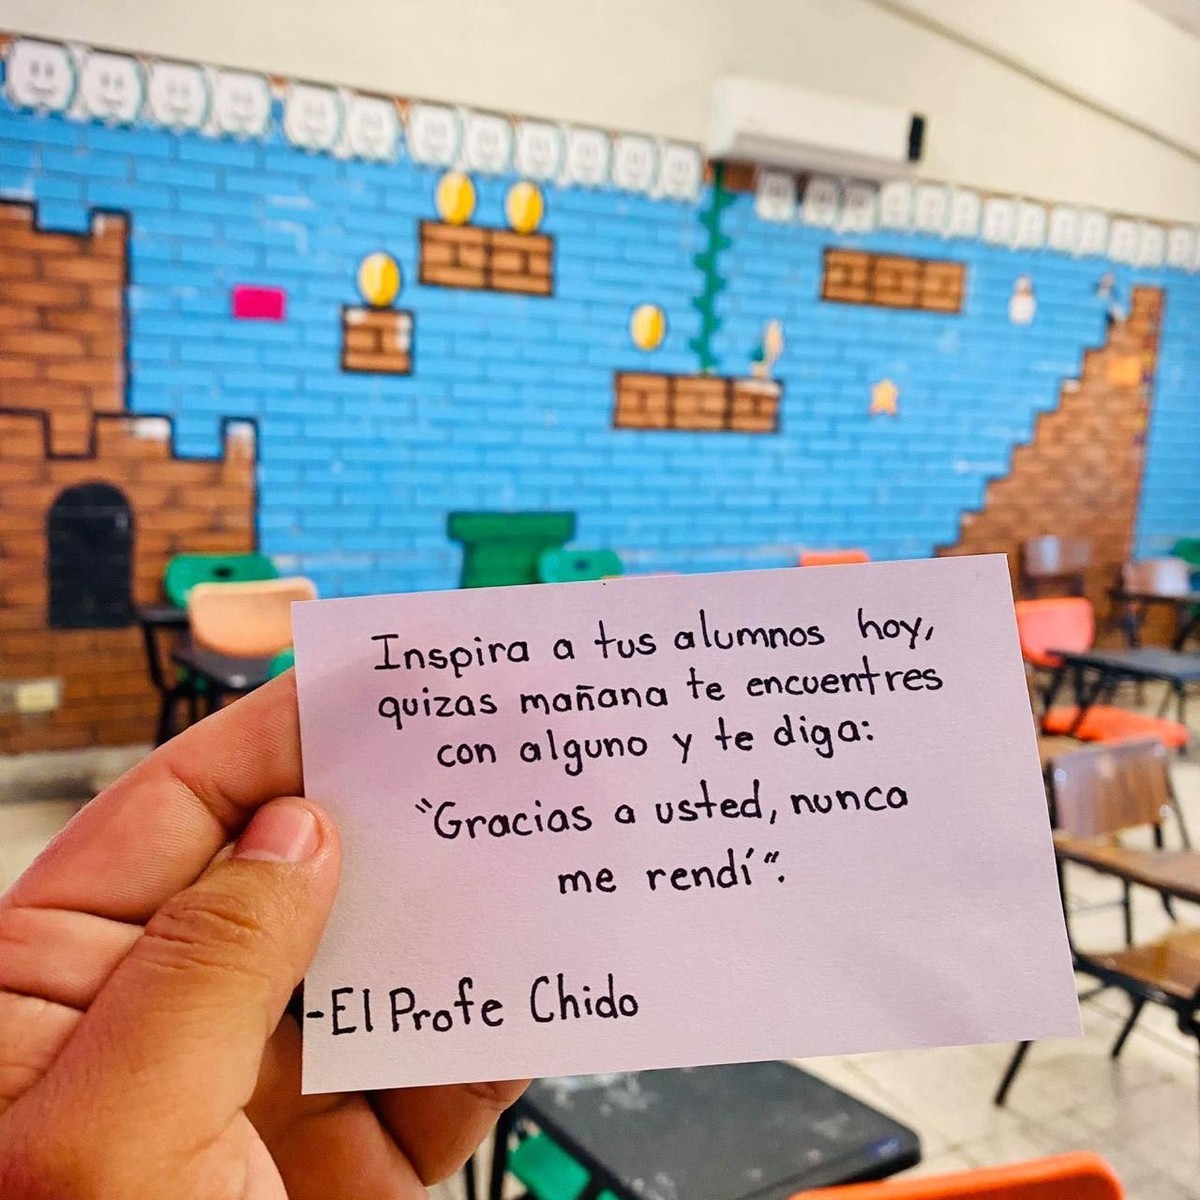 Inspira a tus alumnos hoy,
quizas mañana te encuentres
con alguno y te diga:
"Gracias a usted, nunca
me rendí".
-El Profe Chido